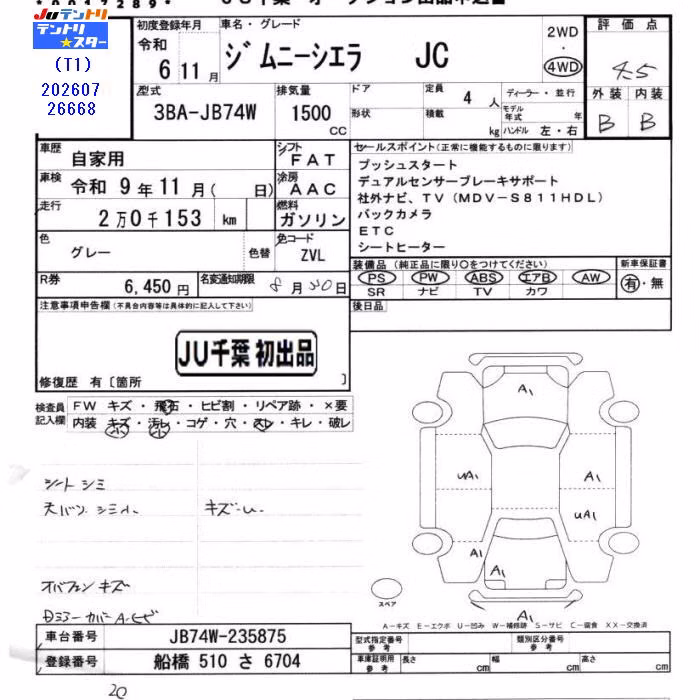 JUテントリ
テントリ★スター
(T1)
202607
26668
初度登録年月
令和
6 11 月
車名・グレード
ジムニーシエラ JC
2WD
・
4WD
評価点
4.5
外装 内装
B B
型式
3BA-JB74W
排気量
1500
CC
ドア
形状
定員
4 人
積載
kg
ディーラー・並行
モデル年式 年
ハンドル 左・右
車歴
自家用
シフト
FAT
車検
令和 9 年 11 月( 日)
冷房
AAC
走行
2 万 0 千 153 km
燃料
ガソリン
色
グレー
色替
色コード
ZVL
R券
6,450 円
名変通知期限
8 月 30 日
セールスポイント(正常に機能するものに限ります)
プッシュスタート
デュアルセンサーブレーキサポート
社外ナビ、TV(MDV-S811HDL)
バックカメラ
ETC
シートヒーター
装備品(純正品に限り○をつけてください)
PS PW ABS エアB AW
SR ナビ TV カワ
新車保証書
有・無
後日品
注意事項申告欄(不具合内容等は具体的に記入して下さい)
JU千葉 初出品
修復歴 有〔箇所 〕
検査員
記入欄
FW キズ・飛石・ヒビ割・リペア跡・×要
内装 キズ・汚レ・コゲ・穴・スレ・キレ・破レ
小 小
シートシミ
天バリ シミ小
キズ・U.
オバフェン キズ
A1
UA1
A1
UA1
A1
A1
A1
スペア
A-キズ E-エクボ U-凹み W-補修跡 S-サビ C-腐食 XX-交換済
車台番号
JB74W-235875
登録番号
船橋 510 さ 6704
型式指定番号
参考
類別区分番号
参考
車庫証明用
参考
長さ cm
幅 cm
高さ cm
20